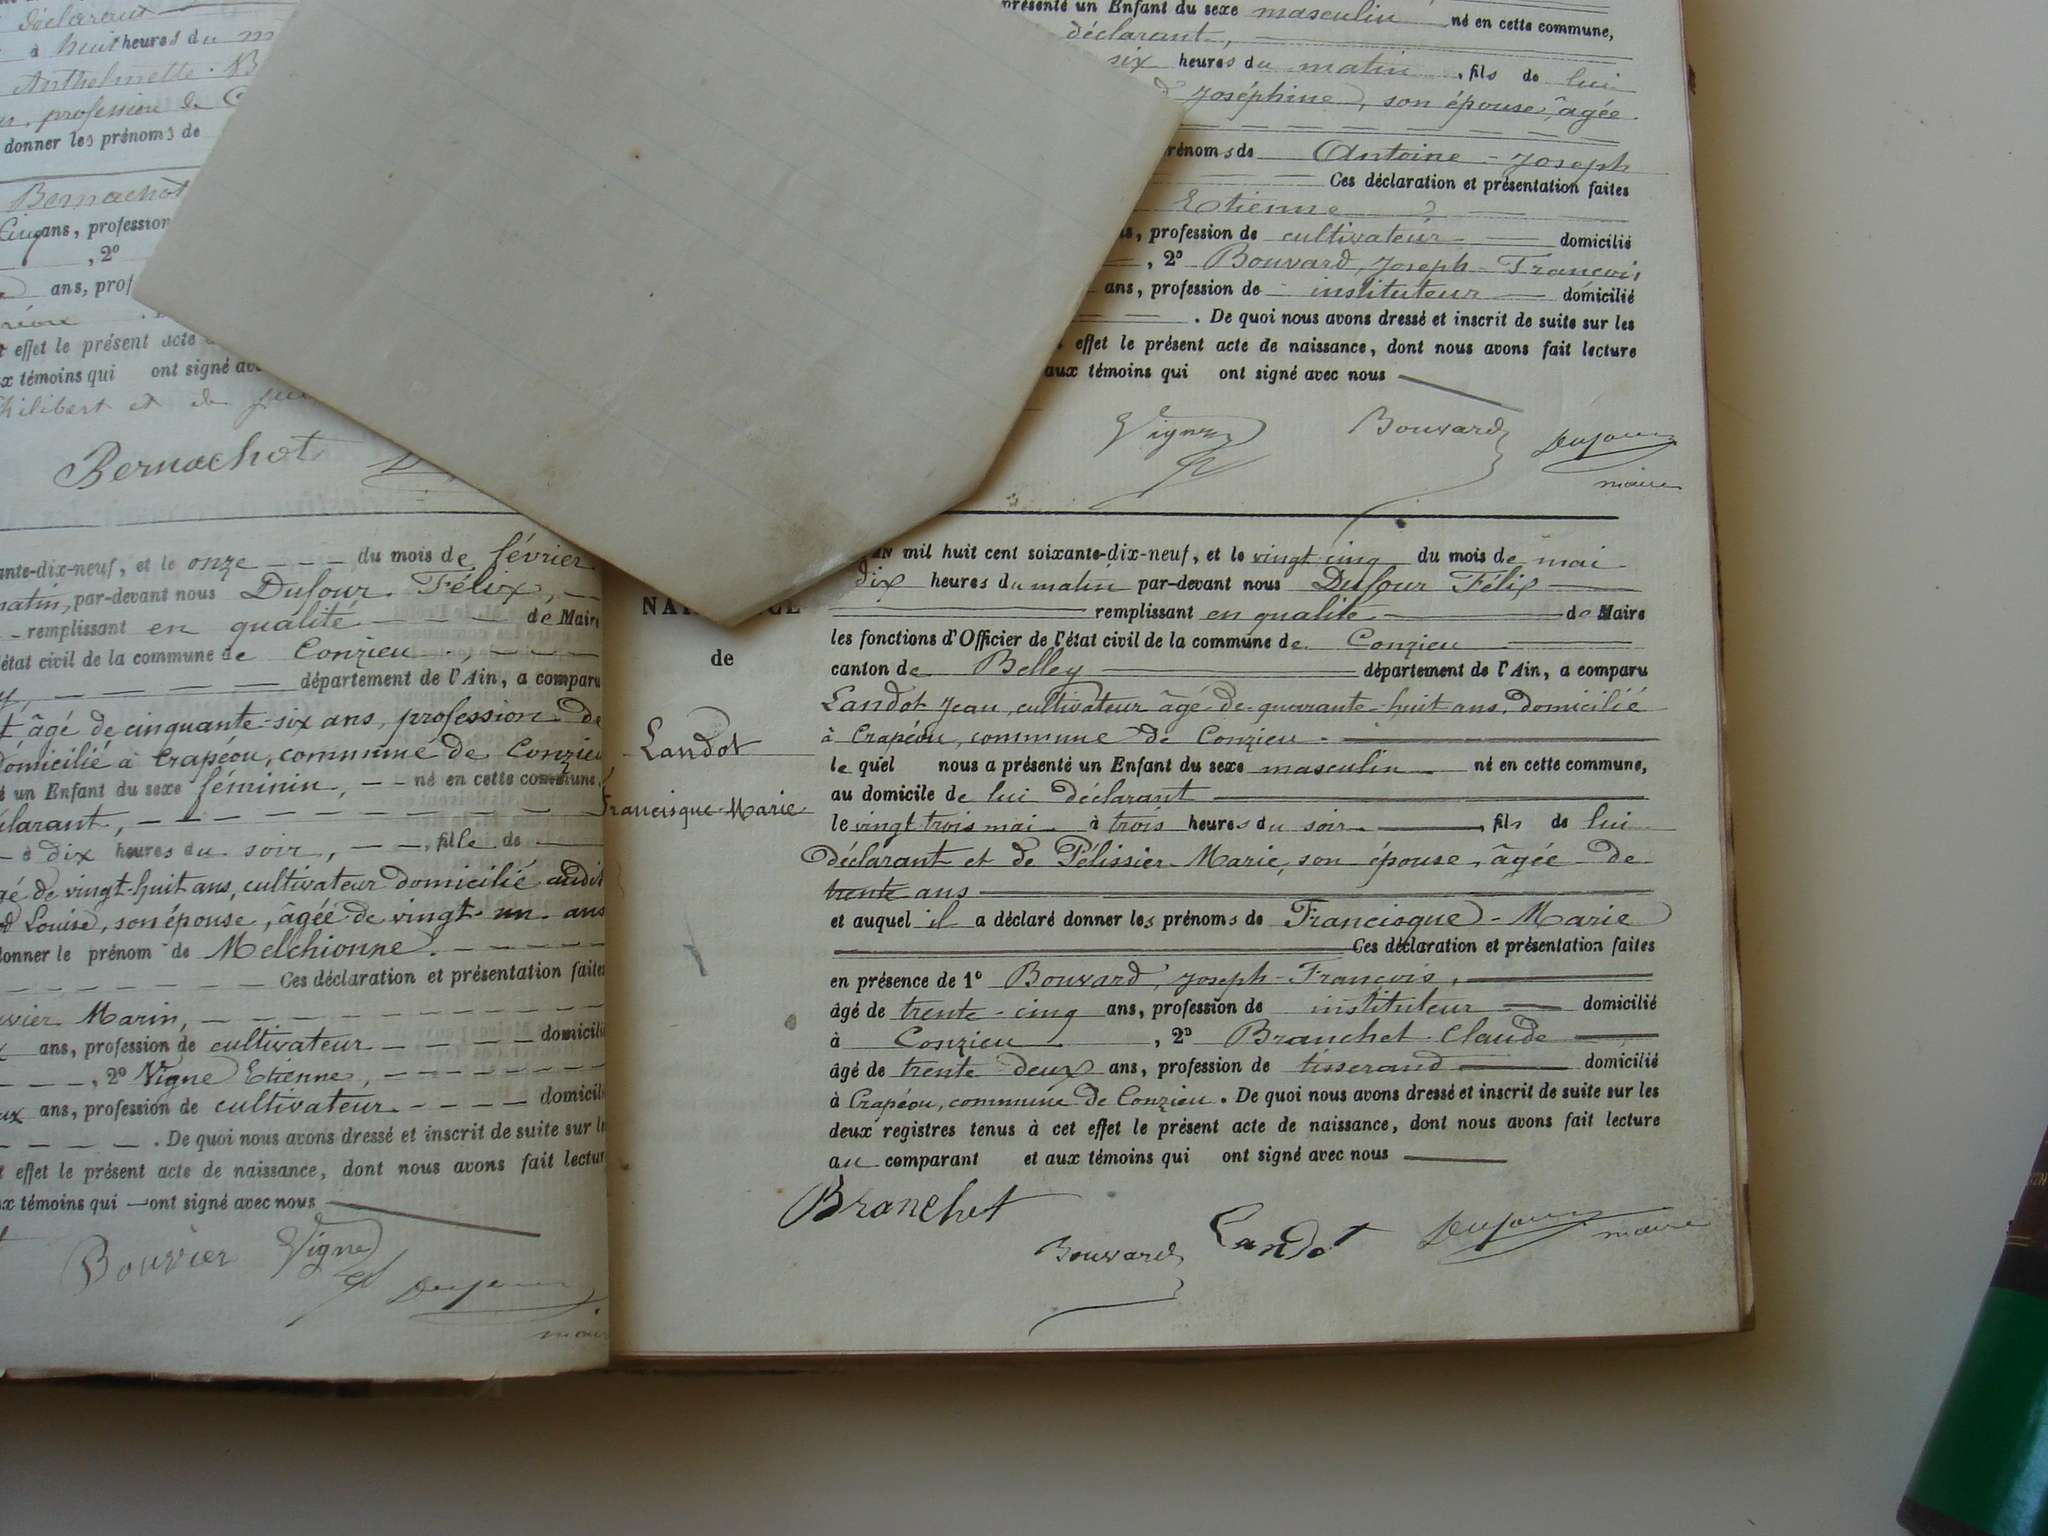 déclarant
à huit heures du m
Anthelmette. B
profession de C
donner les prénoms de
Bernachot
Cinq ans, profession
, 2º
ans, prof
t effet le présent acte
x témoins qui ont signé avec
hilibert et de
Bernachot
ante-dix-neuf, et le onze du mois de février
matin, par-devant nous Dufour Félix,
remplissant en qualité de Maire
'état civil de la commune de Conzieu,
département de l'Ain, a comparu
t âgé de cinquante-six ans, profession de
domicilié à Crapéou, commune de Conzieu
é un Enfant du sexe féminin, né en cette commune,
clarant,
à dix heures du soir, , fille de
gé de vingt-huit ans, cultivateur domicilié audit
d Louise, son épouse, âgée de vingt-un ans
donner le prénom de Melchionne.
Ces déclaration et présentation faites
uvier Marin,
ans, profession de cultivateur domicilié
, 2º Vigne Etienne,
ux ans, profession de cultivateur domicilié
. De quoi nous avons dressé et inscrit de suite sur le
t effet le présent acte de naissance, dont nous avons fait lecture
ux témoins qui ont signé avec nous
Bouvier Vigne Dufour
maire
présenté un Enfant du sexe masculin né en cette commune,
déclarant,
six heures du matin, fils de lui
Joséphine, son épouse, âgée
rénoms de Antoine-Joseph
Ces déclaration et présentation faites
Etienne
ns, profession de cultivateur domicilié
, 2º Bouvard, Joseph-François
ans, profession de instituteur domicilié
. De quoi nous avons dressé et inscrit de suite sur les
effet le présent acte de naissance, dont nous avons fait lecture
aux témoins qui ont signé avec nous
Vigne Bouvard Dufour
maire
NAISSANCE
de
Landot
Francisque-Marie
AN mil huit cent soixante-dix-neuf, et le vingt cinq du mois de mai
dix heures du matin par-devant nous Dufour Félix
remplissant en qualité de Maire
les fonctions d'Officier de l'état civil de la commune de Conzieu
canton de Belley département de l'Ain, a comparu
Landot Jean, cultivateur âgé de quarante-huit ans, domicilié
à Crapéou, commune de Conzieu.
le quel nous a présenté un Enfant du sexe masculin né en cette commune,
au domicile de lui déclarant
le vingt-trois mai à trois heures du soir, fils de lui
déclarant et de Pélissier Marie, son épouse, âgée de
trente ans
et auquel il a déclaré donner les prénoms de Francisque-Marie
Ces déclaration et présentation faites
en présence de 1º Bouvard, Joseph-François,
âgé de trente-cinq ans, profession de instituteur domicilié
à Conzieu , 2º Branchet Claude
âgé de trente deux ans, profession de tisserand domicilié
à Crapéou, commune de Conzieu. De quoi nous avons dressé et inscrit de suite sur les
deux registres tenus à cet effet le présent acte de naissance, dont nous avons fait lecture
au comparant et aux témoins qui ont signé avec nous
Branchet
Bouvard Landot Dufour
maire